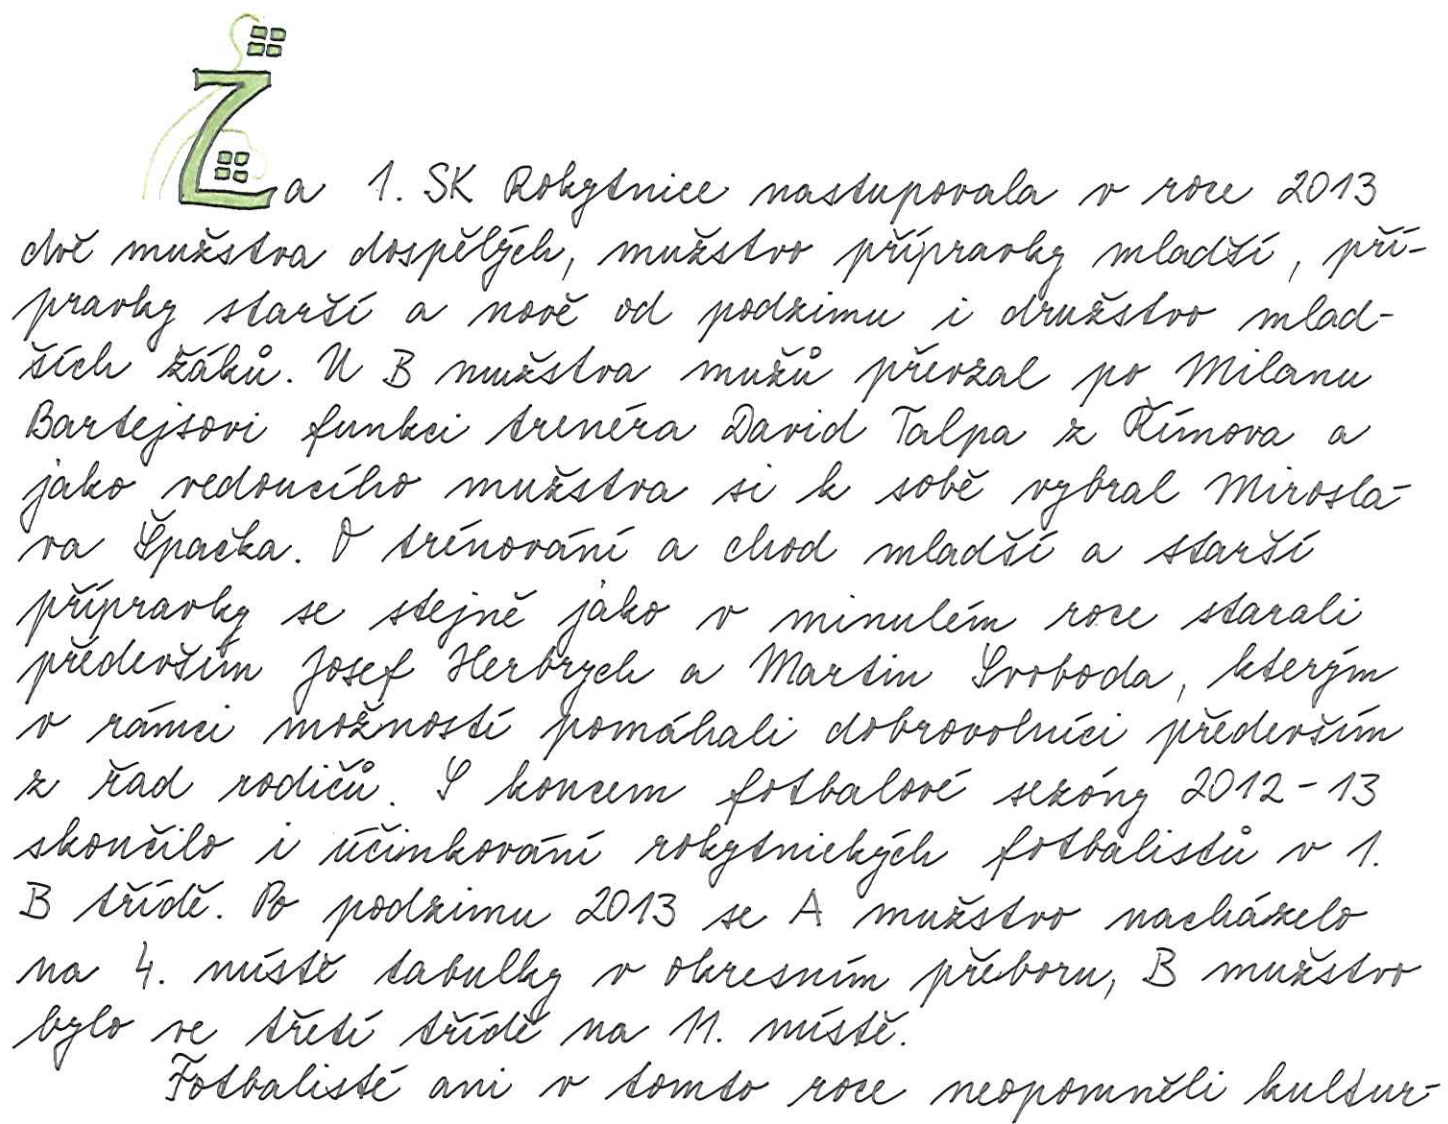 Za 1. SK Rokytnice nastupovala v roce 2013
dvě mužstva dospělých, mužstvo přípravky mladší, pří-
pravky starší a nově od podzimu i družstvo mlad-
ších žáků. U B mužstva mužů převzal po Milanu
Bartejsovi funkci trenéra David Talpa z Římova a
jako vedoucího mužstva si k sobě vybral Mirosla-
va Špačka. O trénování a chod mladší a starší
přípravky se stejně jako v minulém roce starali
především Josef Herbrych a Martin Svoboda, kterým
v rámci možností pomáhali dobrovolníci především
z řad rodičů. S koncem fotbalové sezóny 2012-13
skončilo i účinkování rokytnických fotbalistů v 1.
B třídě. Po podzimu 2013 se A mužstvo nacházelo
na 4. místě tabulky v okresním přeboru, B mužstvo
bylo ve třetí třídě na 11. místě.
Fotbalisté ani v tomto roce neopomněli kultur-